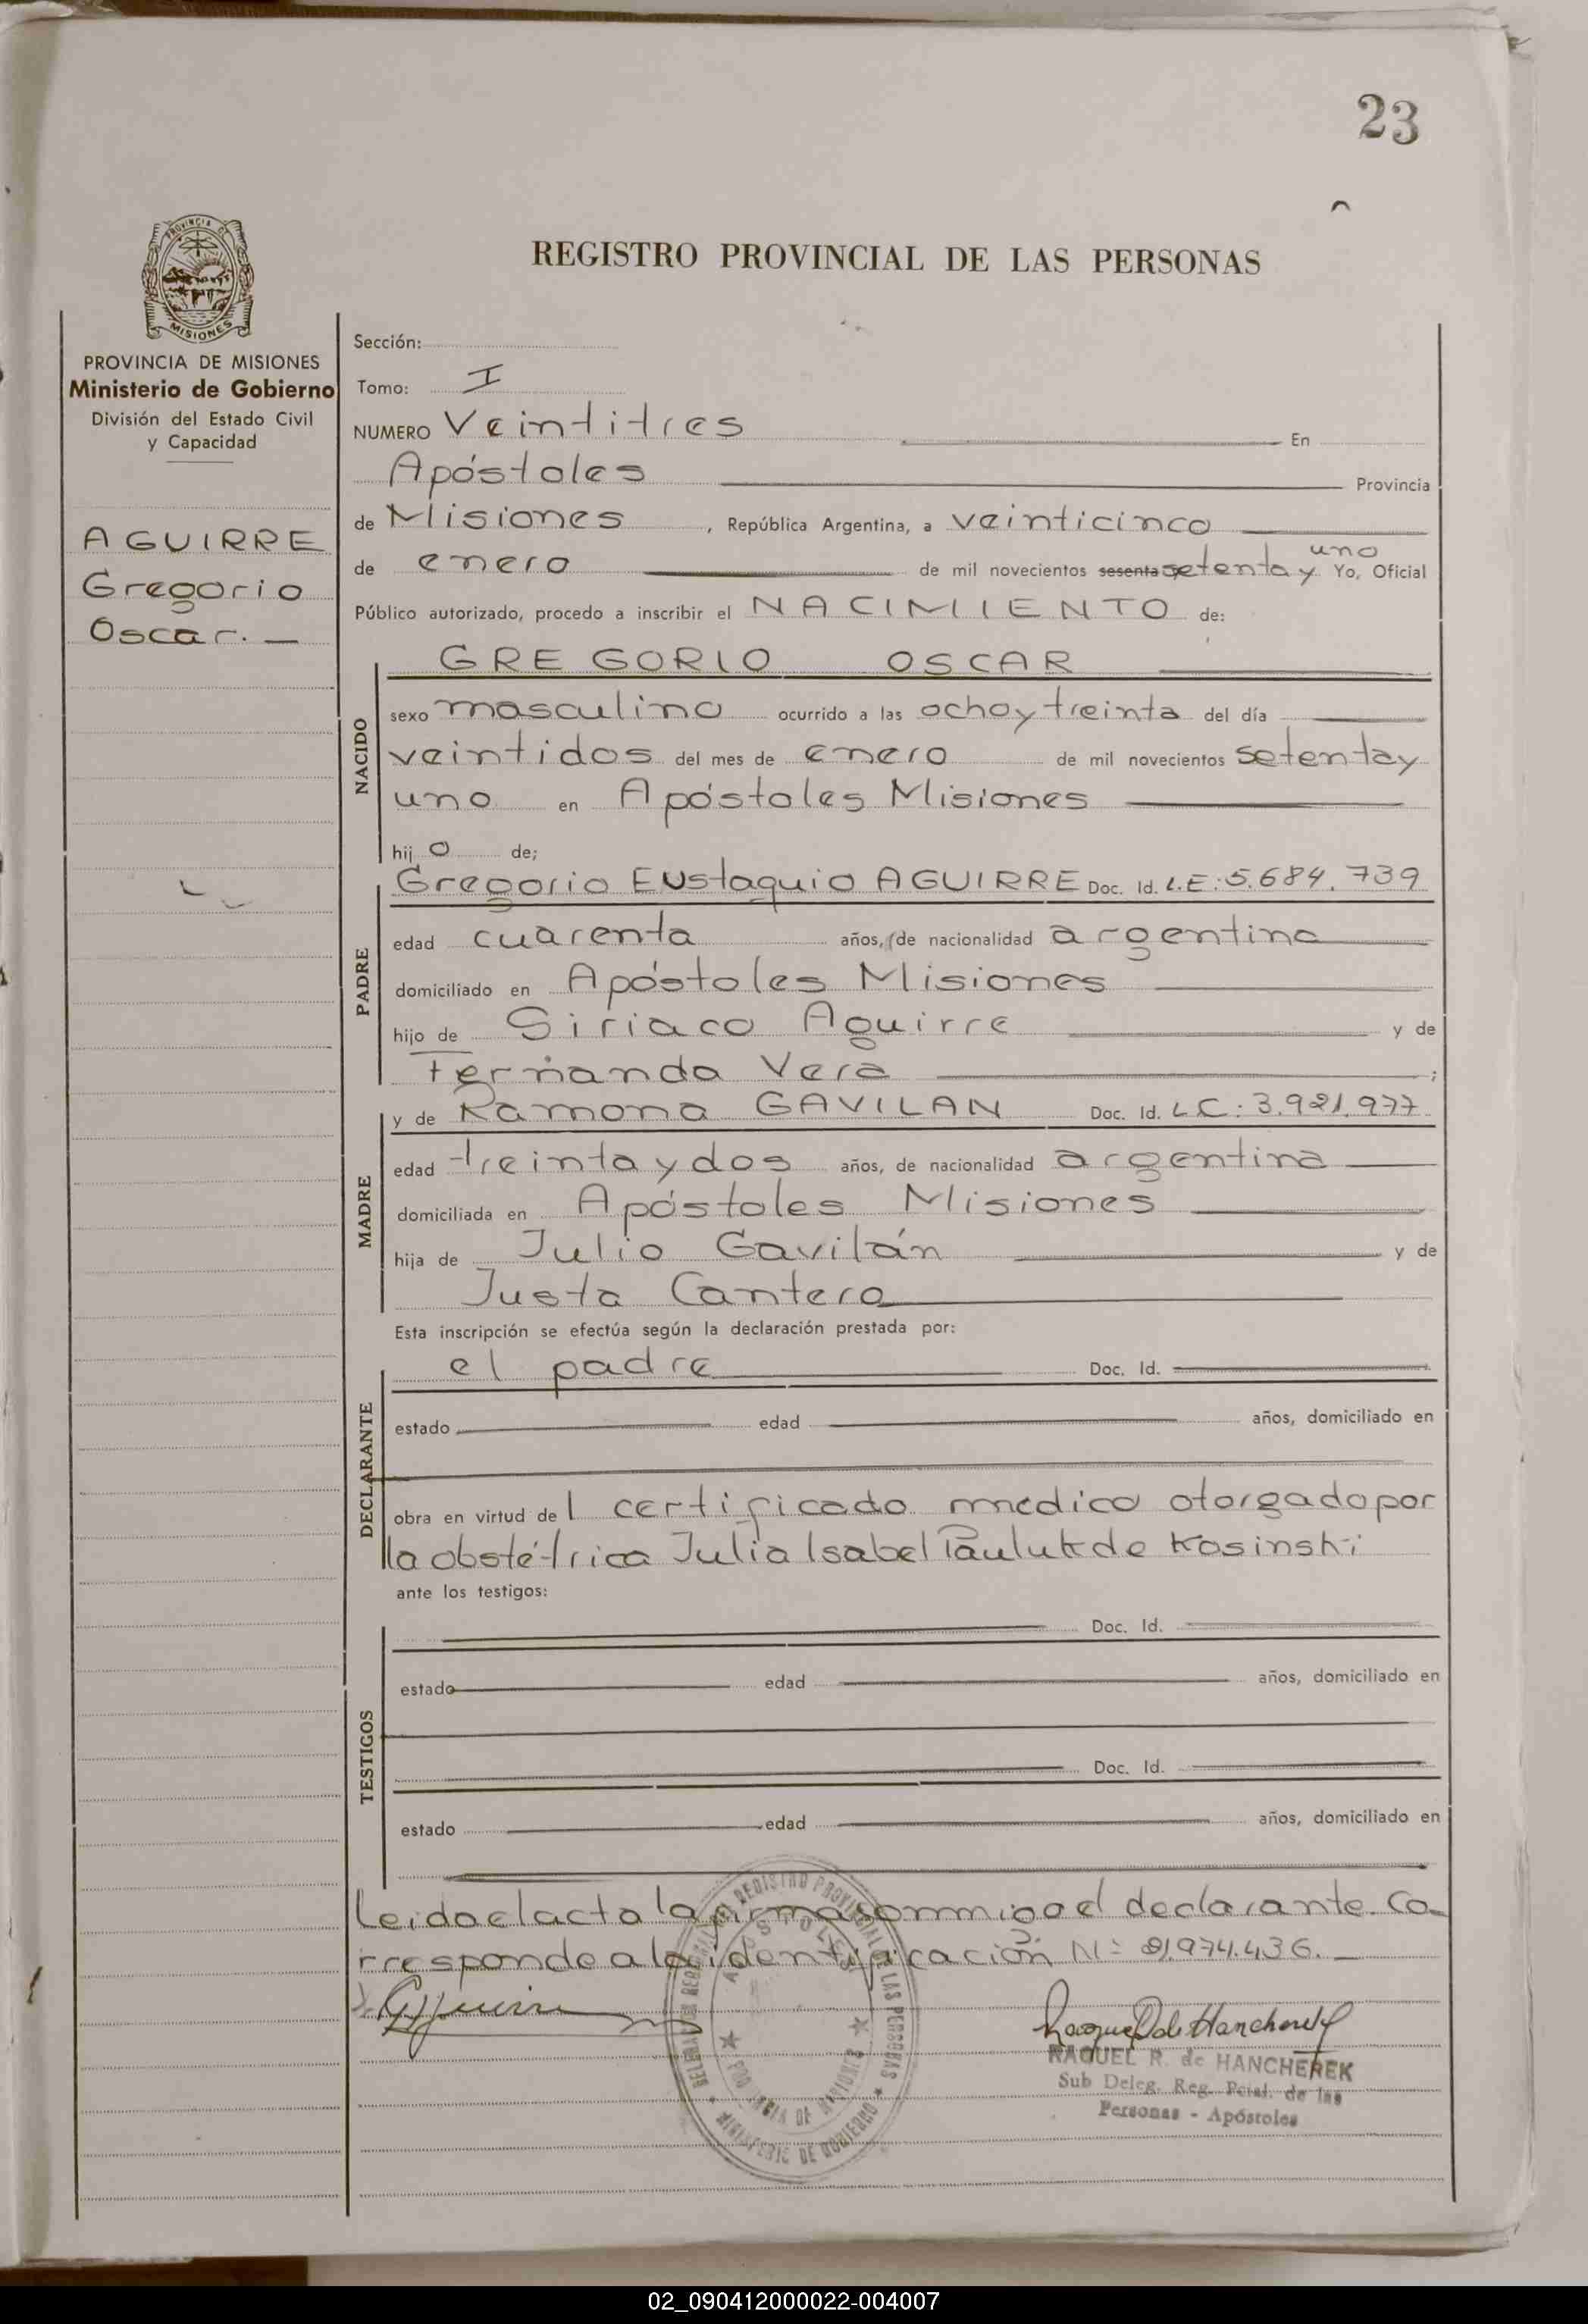 23
REGISTRO PROVINCIAL DE LAS PERSONAS
PROVINCIA DE MISIONES
PROVINCIA DE MISIONES
Ministerio de Gobierno
División del Estado Civil
y Capacidad
AGUIRRE
Gregorio
Oscar.
Sección:
Tomo: I
NUMERO Veintitres En
Apóstoles Provincia
de Misiones , República Argentina, a veinticinco
uno
de enero de mil novecientos sesenta setenta y Yo, Oficial
Público autorizado, procedo a inscribir el NACIMIENTO de:
NACIDO
GREGORIO OSCAR
sexo masculino ocurrido a las ocho y treinta del día
veintidos del mes de enero de mil novecientos setenta y
uno en Apóstoles Misiones
hij o de;
PADRE
Gregorio EUstaquio AGUIRRE Doc. Id. L.E:5.684.739
edad cuarenta años, (de nacionalidad argentina
domiciliado en Apóstoles Misiones
hijo de Siriaco Aguirre y de
Fernanda Vera ;
MADRE
y de Ramona GAVILAN Doc. Id. L.C: 3.921.977
edad treinta y dos años, de nacionalidad argentina
domiciliada en Apóstoles Misiones
hija de Julio Gavilán y de
Justa Cantero
Esta inscripción se efectúa según la declaración prestada por:
DECLARANTE
el padre Doc. Id.
estado edad años, domiciliado en
obra en virtud de l certificado medico otorgado por
la obstétrica Julia Isabel Pauluk de Kosinski
ante los testigos:
TESTIGOS
Doc. Id.
estado edad años, domiciliado en
Doc. Id.
estado edad años, domiciliado en
Leido el acta la firmas conmigo el declarante. Co-
rresponde a la identificación Nº 21.974.436.
RAQUEL R. de HANCHEREK
Sub Deleg. Reg. Pcial. de las
Personas - Apóstoles
02_090412000022-004007